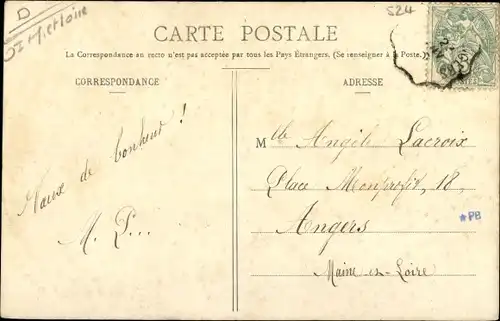 D
524
CARTE POSTALE
La Correspondance au recto n'est pas acceptée par tous les Pays Étrangers. (Se renseigner à la Poste.)
CORRESPONDANCE
ADRESSE
Vœux de bonheur !
M. P...
Mlle Angèle Lacroix
Place Monprofit, 18,
Angers
Maine-et-Loire
*PB